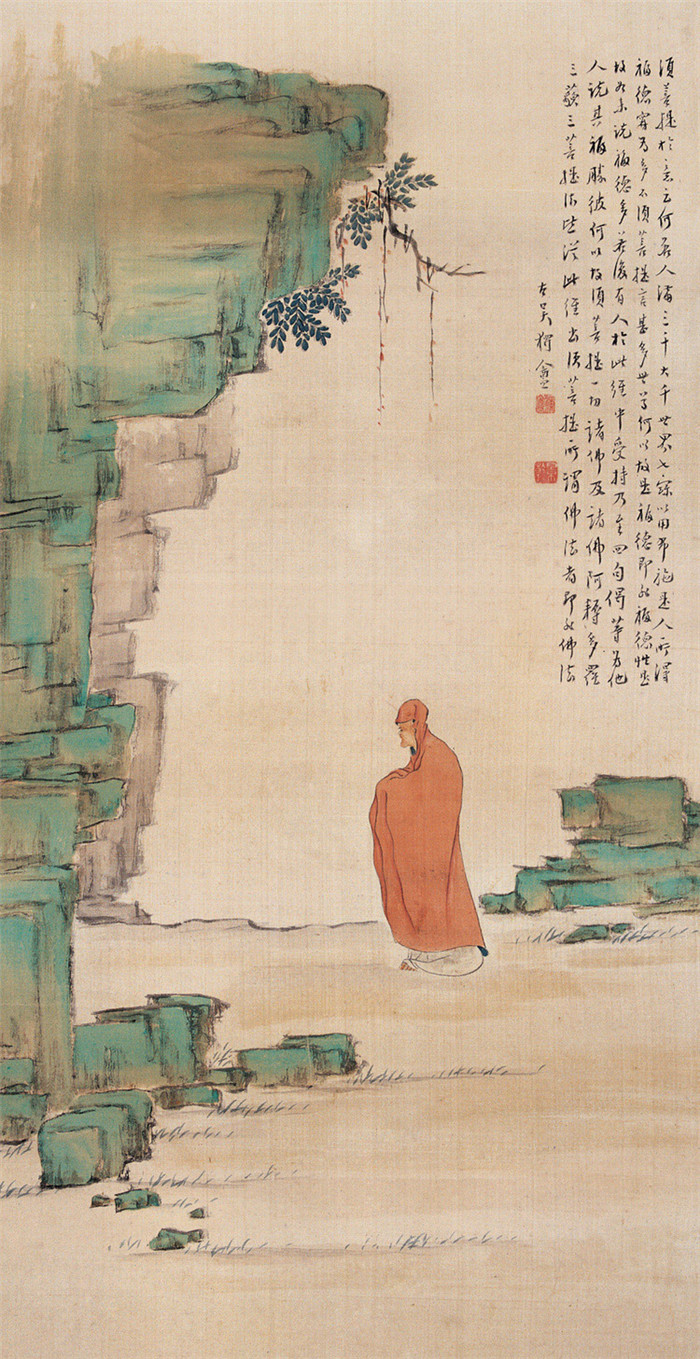 須菩提於意云何若人滿三千大千世界七寶以用布施是人所得
福德寧為多不須菩提言甚多世尊何以故是福德即非福德性是
故如來說福德多若復有人於此經中受持乃至四句偈等為他
人說其福勝彼何以故須菩提一切諸佛及諸佛阿耨多羅
三藐三菩提法皆從此經出須菩提所謂佛法者即非佛法
古吳